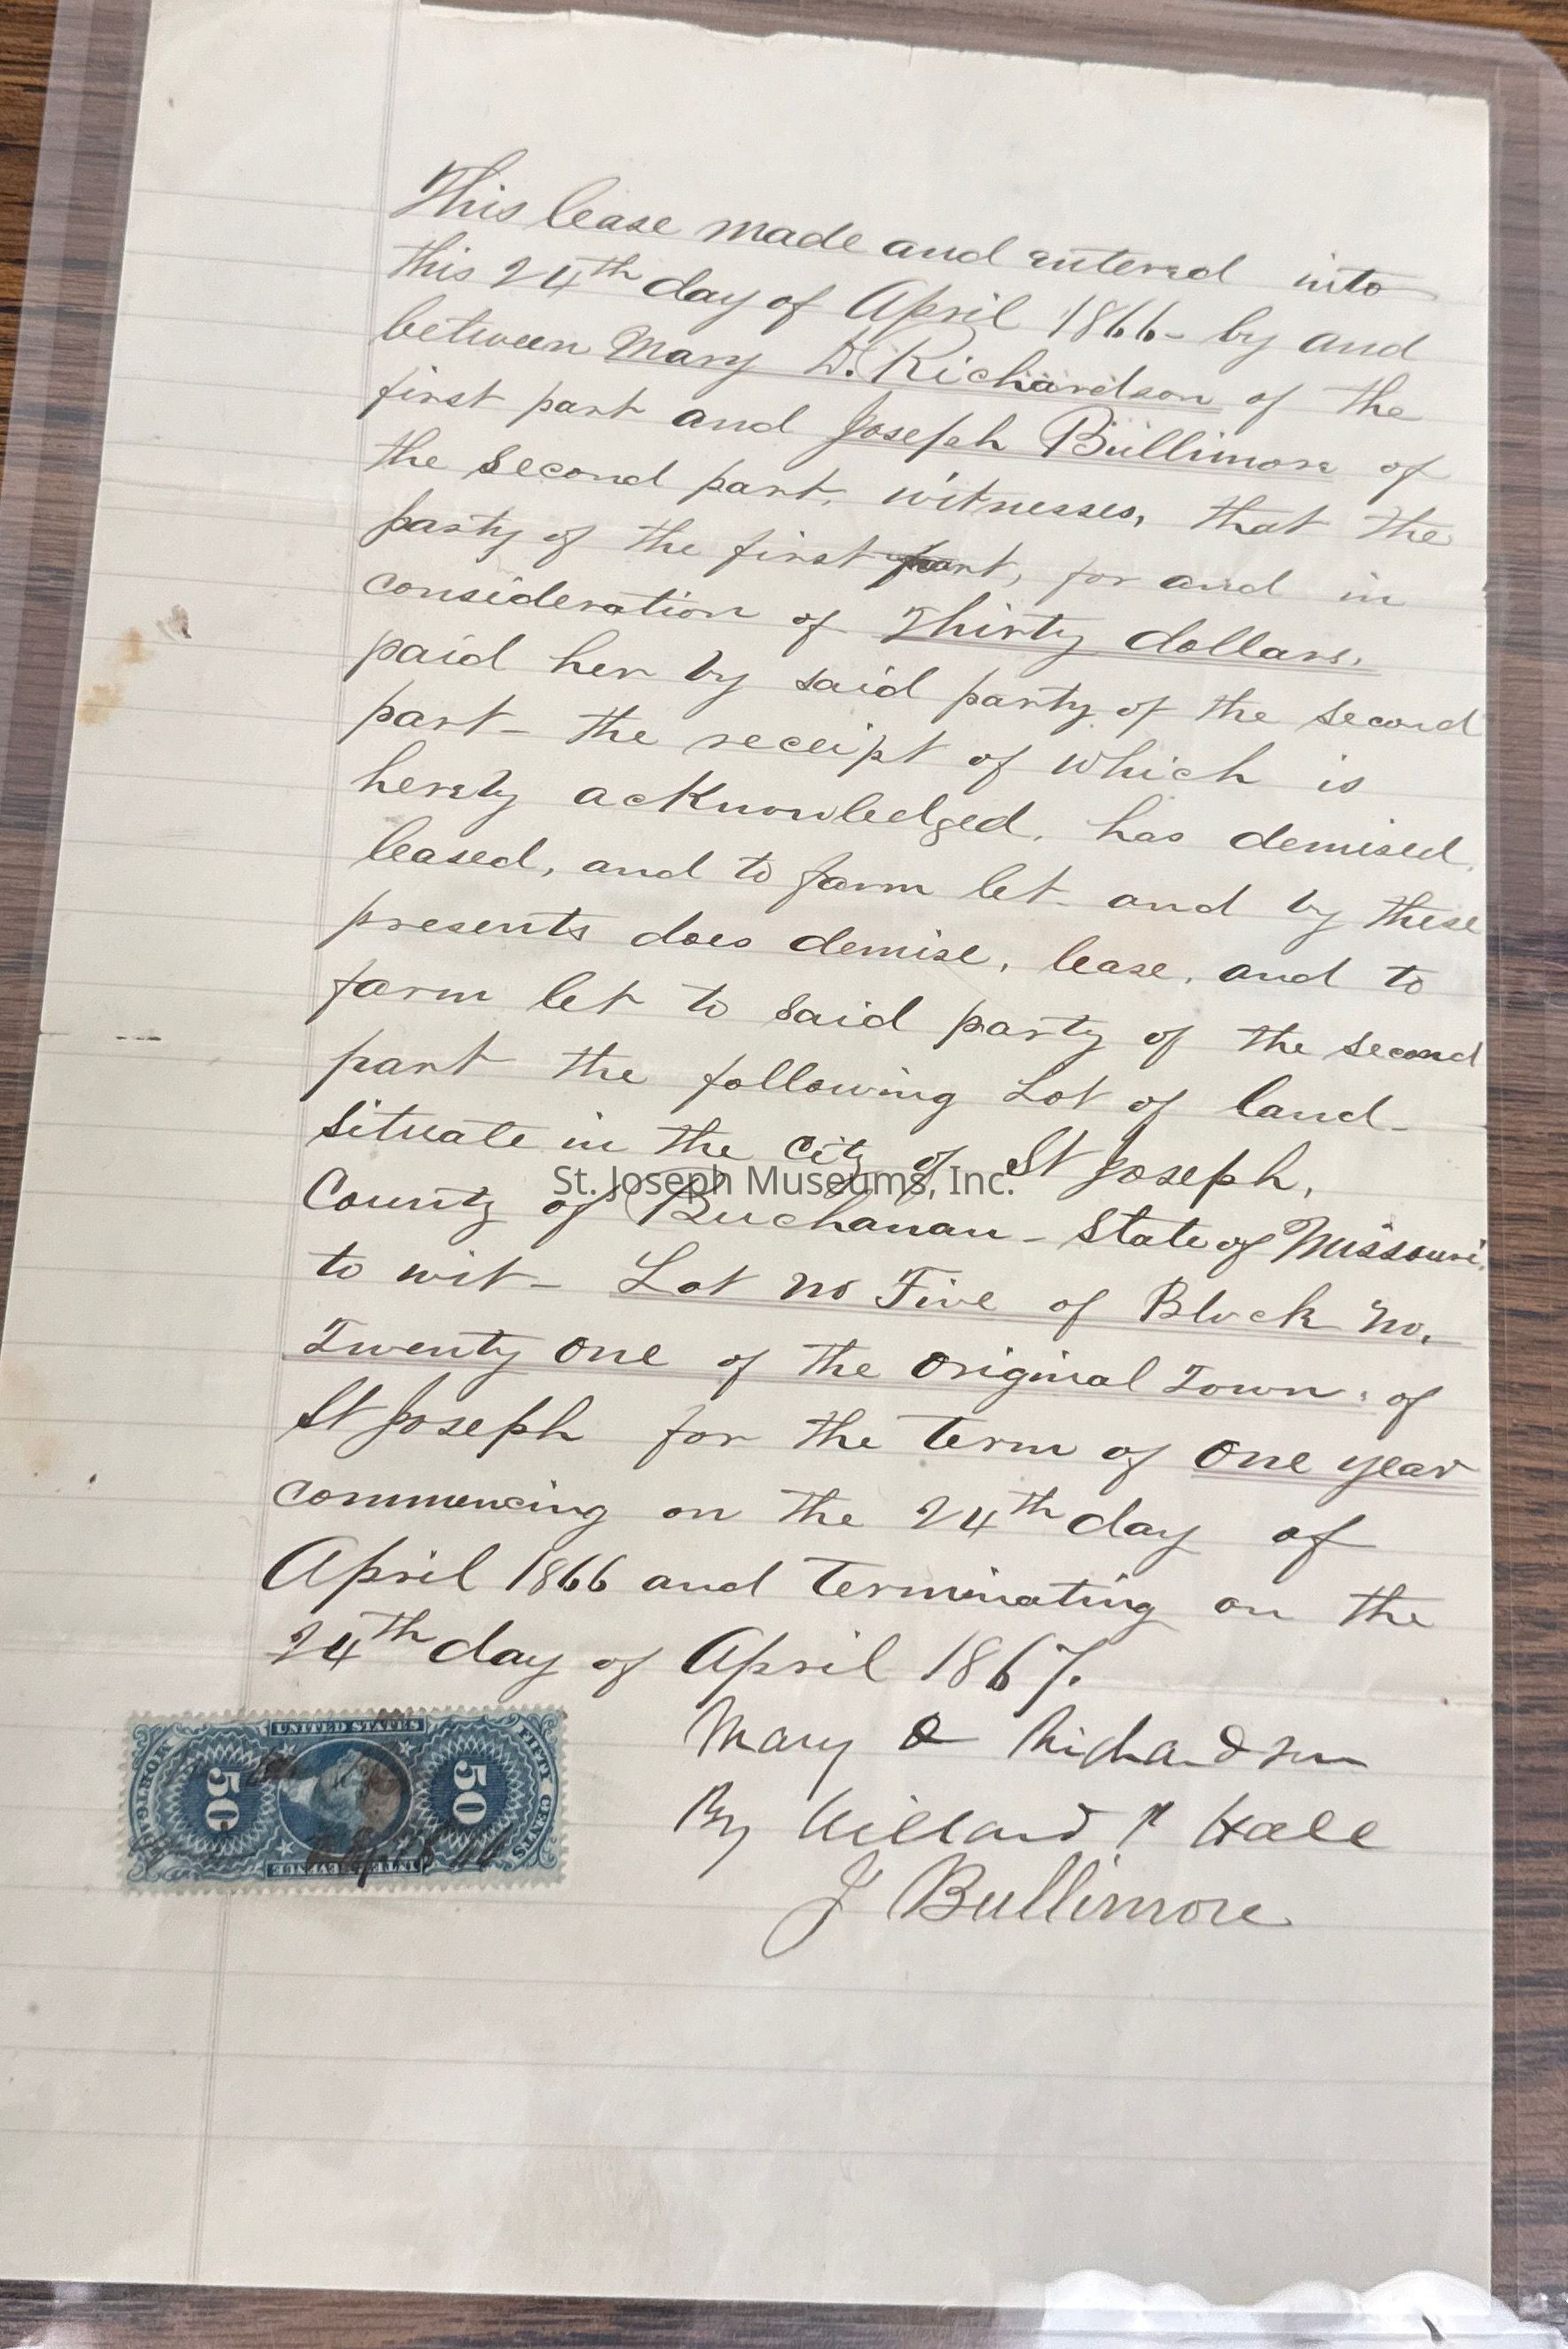 This lease made and entered into
this 24th day of April 1866- by and
between Mary D. Richardson of the
first part and Joseph Bullimore of
the second part, witnesses, that the
party of the first part, for and in
consideration of Thirty dollars.
paid her by said party of the second
part - the receipt of which is
hereby acknowledged, has demised,
leased, and to farm let - and by these
presents does demise, lease, and to
farm let to said party of the second
part the following Lot of land -
situate in the city of St Joseph,
St. Joseph Museums, Inc.
County of Buchanan - State of Missouri.
to wit - Lot no Five of Block no.
Twenty One of the Original Town, of
St Joseph for the term of One year
commencing on the 24th day of
April 1866 and terminating on the
24th day of April 1867.
Mary D Richardson
By Willard P Hall
J Bullimore
UNITED STATES
FIFTY CENTS
50
50
INTER. REVENUE